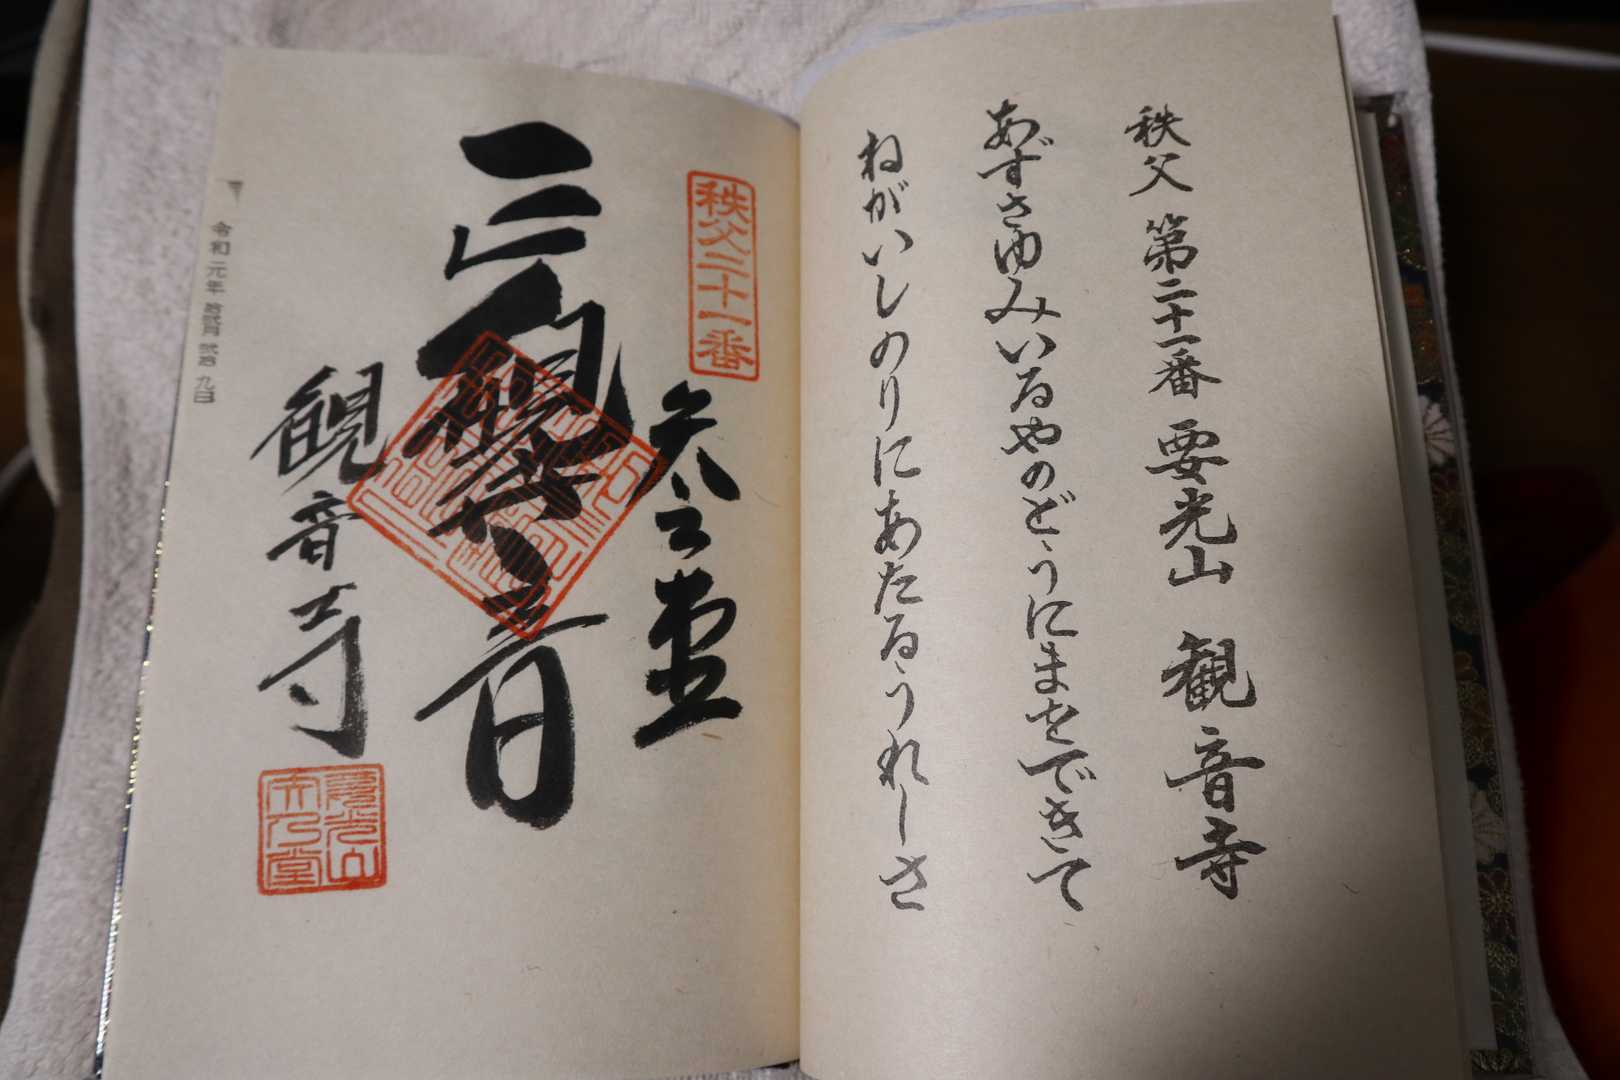 秩父 第二十一番 要光山 観音寺
あずさゆみいるやのどうにまをできて
ねがいしのりにあたるうれしさ
秩父二十一番
矢之堂
観世音
観音寺
要光山
矢乃堂
令和 元年 拾弐月 弐拾 九日